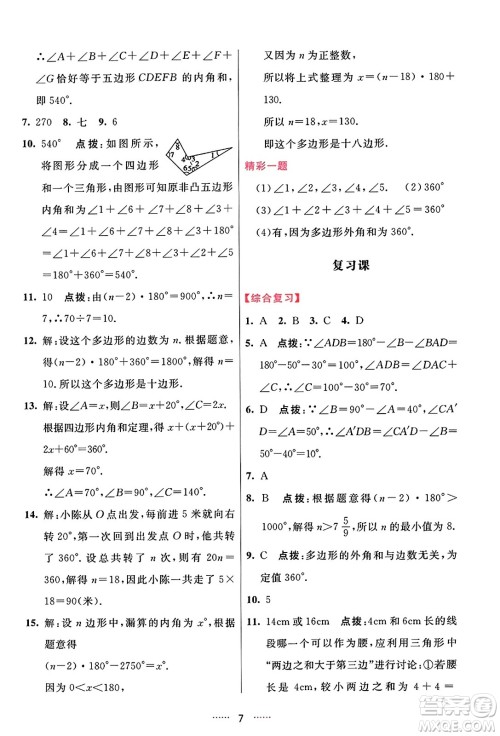 ∴∠A+∠B+∠DHE+∠E+∠F+
∠G恰好等于五边形CDEFB的内角和,
即540°.
7. 270 8. 七 9. 6
10. 540° 点拨:如图所示,
将图形分成一个四边形
和一个三角形,由三角形可知原非凸五边形
内角和为∠1+∠2+∠3+∠4+∠5+
∠6=∠1+∠4+∠5+∠7+∠8+∠6=
180°+360°=540°.
11. 10 点拨:由(n-2)·180°=900°,得n=7.
∴70÷7=10.
12. 解:设这个多边形的边数为n.根据题意,
得(n-2)·180°+360°=1800°.解得n=
10.所以这个多边形是十边形.
13. 解:设∠A=x,则∠B=∠A+20°,∠C=2x.
根据四边形内角和定理,得x+(x+20°)+
2x+60°=360°.
解得x=70°.
∴∠A=70°,∠B=90°,∠C=140°.
14. 解:小陈从O点出发,每前行5米就向右
转20°.第一次回到出发点O时,需共右
转360°.设总共转了n次,则n·20°=
360°.解得n=18.因此小陈一共走了5×
18=90(米).
15. 解:设n边形中,漏算的内角为x°.根据
题意得
(n-2)·180°-2750°=x°.
因为0<x<180,
又因为n为正整数,
所以将上式整理为x=(n-18)·180+
130.
所以n=18,x=130.
即此多边形是十八边形.
精彩一题
(1)∠1,∠2,∠3 (2)360°
(3)∠1,∠2,∠3,∠4 360°
(4)360°,因为多边形外角和为360°
复习课
【综合复习】
1. A 2. B 3. C 4. D
5. A 点拨:∵∠ADB=∠DAC=180°-
180°-50°-30°=100°,∠ADB=∠ADC,
∴∠ADC=100°.
6. D 点拨:∵∠A=∠CA'D=50°,∠CA'
D=∠B+∠BDA',∴∠BDA'=∠CA'D-
∠B=50°-40°=10°.
7. A
8. B 点拨:根据题意得(n-2)·180°>
1000°,解得n>7 5/9,所以n的最小值为8.
9. C 点拨:多边形的外角和与边数无关,为
定值360°.
10. 5
11. 14cm或16cm 点拨:4cm或6cm长的线
段哪个可以作为腰,应利用三角形中
“两边之和大于第三边”进行讨论:①若腰
为4cm,则较小两边之和为4+4=
7